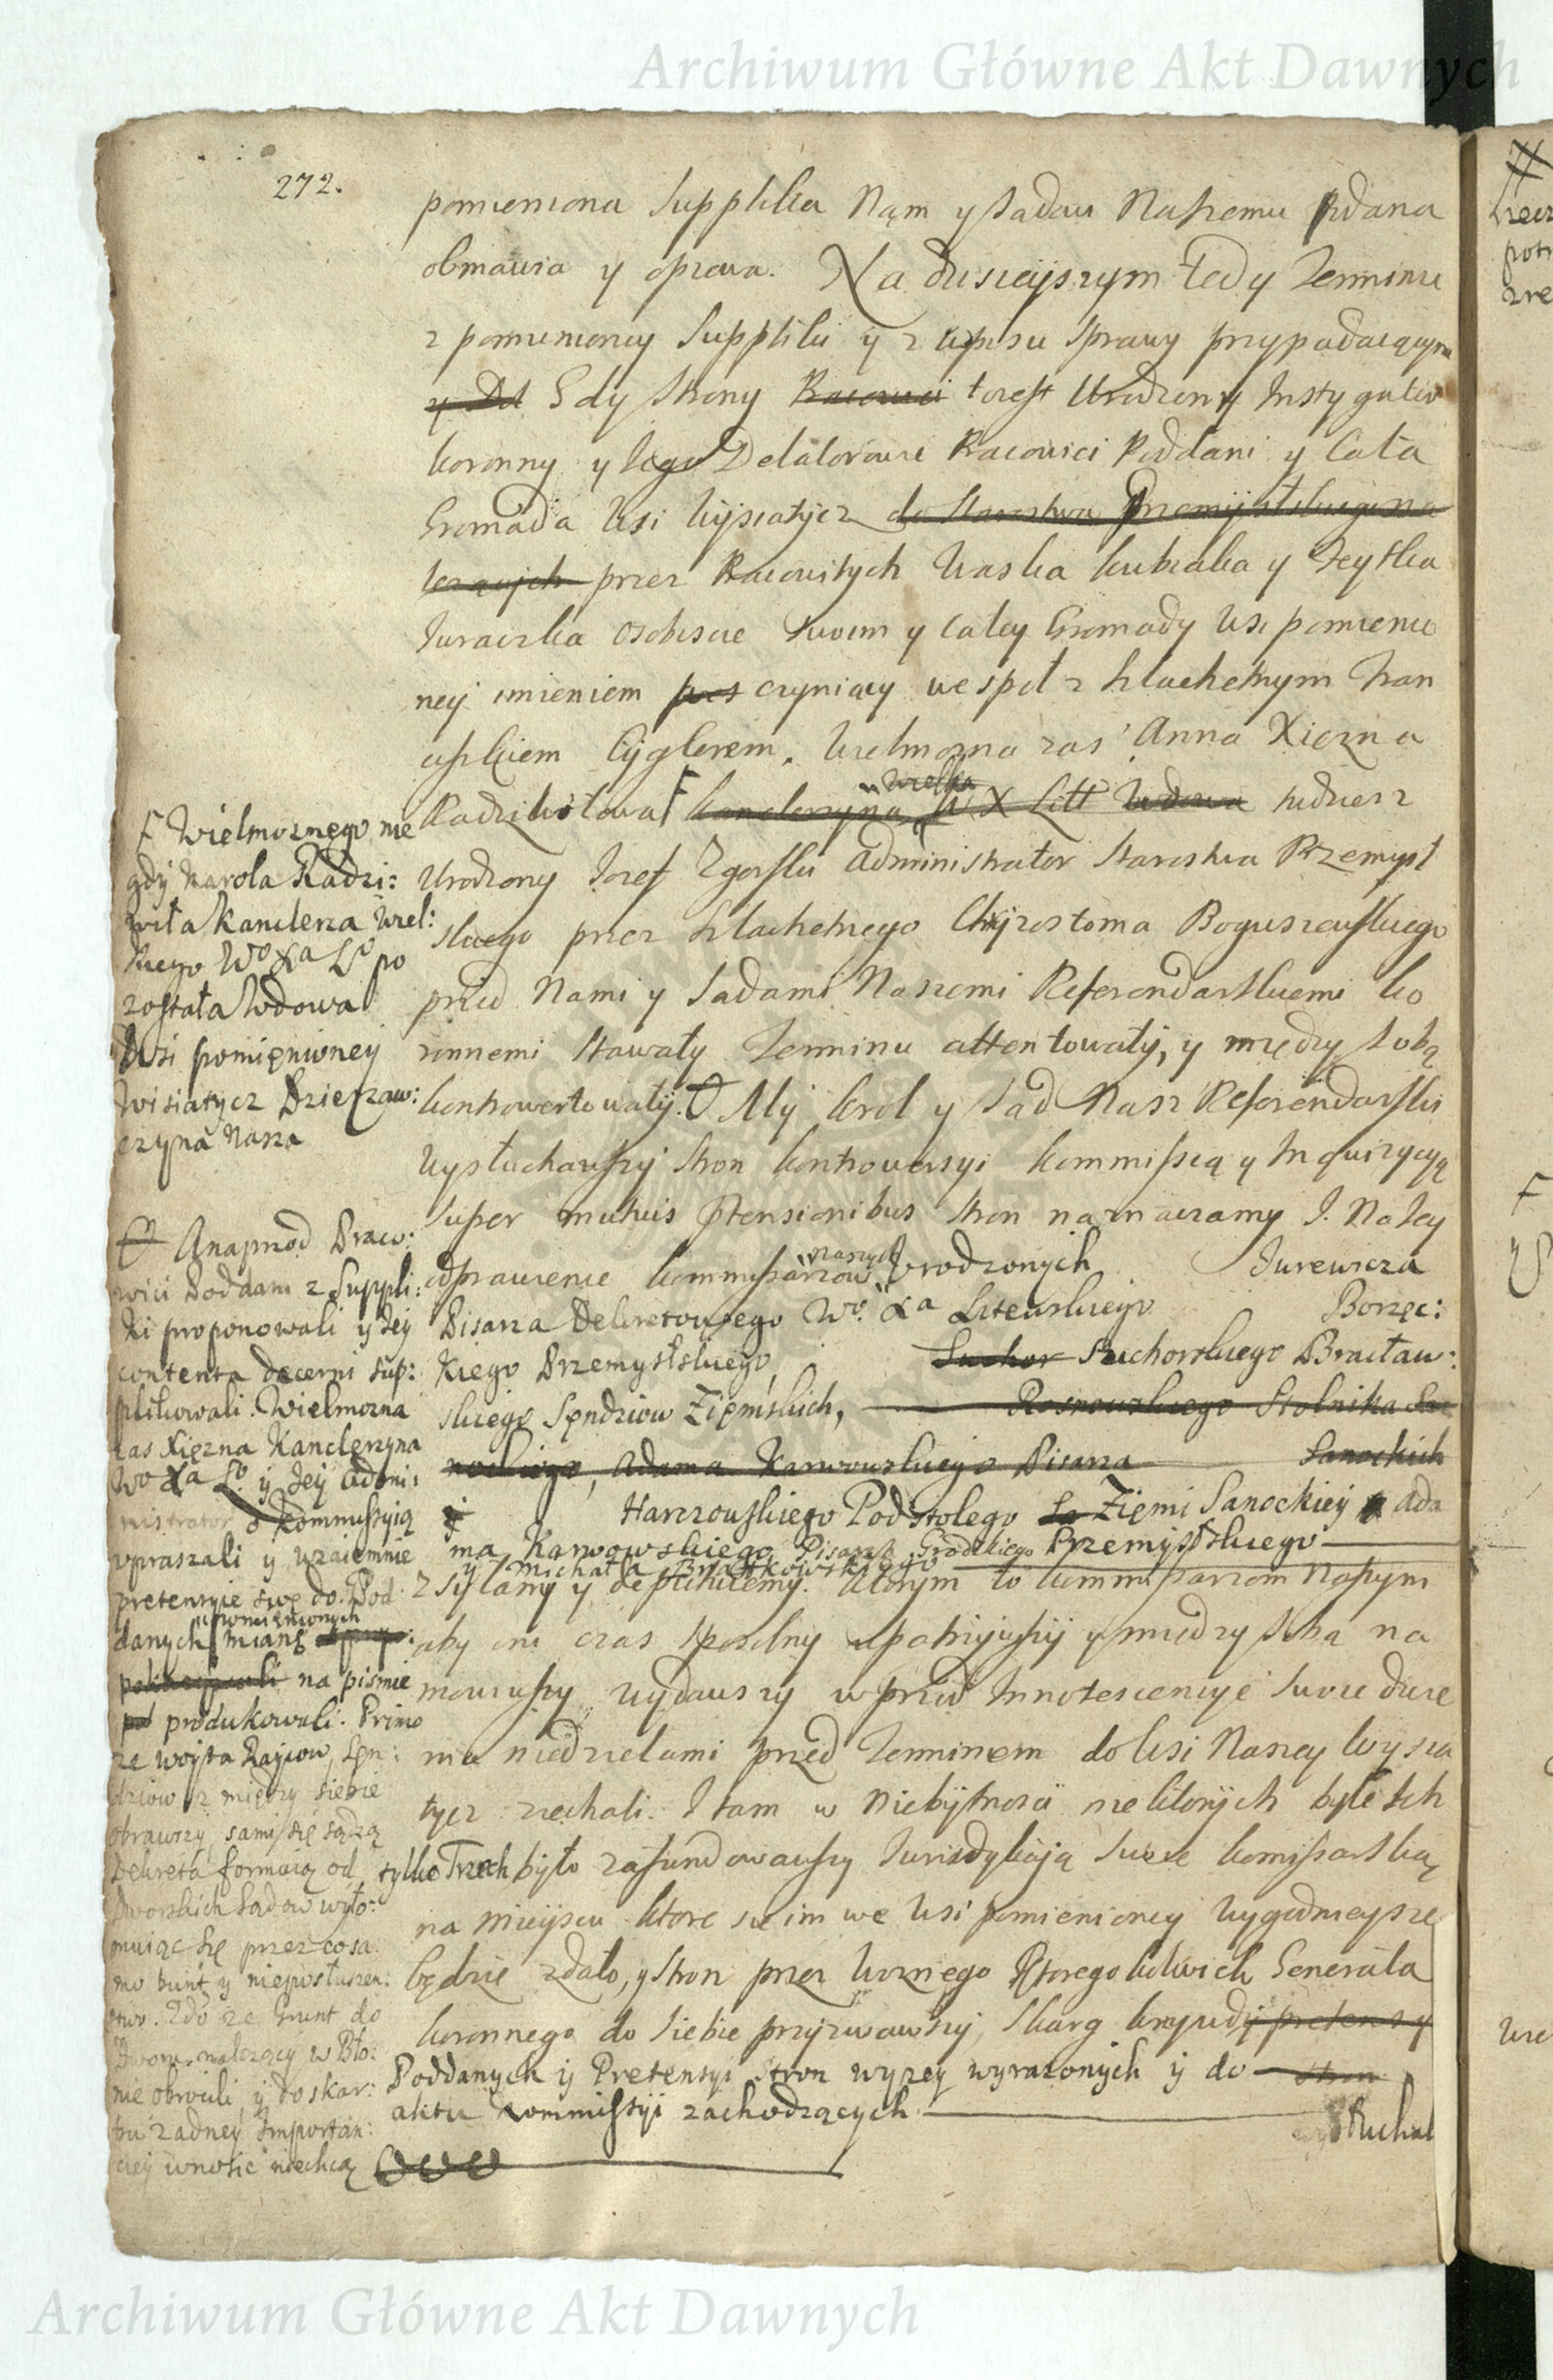 Archiwum Główne Akt Dawnych
272.
pomieniona Supplika Nąm y Sadow Naszemu Pdana
obmawia y opiewa. Na dzisieyszym tedy Terminie
z pomienioney Suppliki y z wpisu Sprawy przypadaiącym
y Gdy Strony Pracowici to iest Urodzony Instygator
koronny y Iego Delatorowie Pracowici Poddani y Cała
Gromada Wsi Wysiatycz do Starostwa Przemyslskiego na
lezących przez Pracowitych Waska kubraka y Feyska
Juraszka osobiscie Swoim y Całey Gromady Wsi pomienio
ney imieniem czyniący wespoł z Szlachetnym Fran
ciszkiem Cyglerem. Wielmozna zas Anna Xiezna
wielka
Radziwiłłowa F kanclerzyna W X Litt Wdowa tudziesz
Urodzony Jozef Zgorski administrator Starostwa Przemysl
skiego przez Szlachetnego Chryzostoma Boguszewskiego
przed Nami y Sadami Naszemi Referendarskiemi ko
ronnemi Stawały Terminu attentowały, y między Sobą
kontrowertowały. My krol y Sad Nasz Referendarski
Wysłuchawszy Stron kontrowersyi kommissią y Inquizycyą
Super mutuis Ptensionibus Stron naznaczamy J. Na Iey
naszych
odprawienie kommissarzow Urodzonych Jurewicza
Pisarza Dekretowego Wo. Xa Litewskiego Borzęc:
kiego Przemyslskiego, Suchor Suchorskiego Bracław:
skiego Sendziow Ziemskich, Rosnowskiego Stolnika Sa
nockiego, Adama Karwowskiego Pisarza Sanockich
Harczowskiego Podstolego Ziemi Sanockiey Ada
ma Karwowskiego Pisarza Grodzkiego Przemyslskiego
y Michała
zsyłamy y deputuiemy. ktorym to kommissarzom Naszym
aby oni czas Sposobny upatrzywszy y miedzy Soba na
mowiwszy wydawszy wprzod Innotescencyie Swoie dwie
ma niedzielami przed Terminem do Wsi Naszey Wysia
tycz ziechali. I tam w Niebytnosci niektorych byle Ich
tylko Trzech było zafundowawszy Jurisdykcyą Swoie komissarską
na mieyscu ktore sie im we Wsi pomienioney Wygodnieysze
będzie zdało, y Stron przez Woznego Ktoregokolwiek Generała
koronnego do Siebie przyzwawszy, Skarg krzywd y pretensy
Poddanych y Pretensyi Stron wyzey wyrazonych y do Stron
aktu kommissyi zachodzących
wysłuchal
F Wielmoznego nie
gdy Karola Radzi:
wiła Kanclerza Wiel:
kiego Wo Xa Lo po
zostala Wdowa
Wsi pomienioney
Wisiatycz Dzierzaw:
czyna Nasza
A naprzod Praco:
wici Poddani z Suppli:
ki proponowali y Iey
contenta decerni sup:
plikowali. Wielmozna
zas Xiezna Kanclerzyna
Wo Xa Lo y Iey Admi:
nistrator o kommissyią
upraszali y wzaiemnie
pretensyie swe do Pod
pomienionych
danych miane
na pismie
produkowali. Primo
ze woyta Raycow, Sen:
dziow z między siebie
obrawszy sami się sądzą
Dekreta formuią od
Dworskich Sądow wyło:
muiąc się przez co sa
mo bunt y nieposłuszen:
stwo. 2do ze Grunt do
Dworu nalezący w Bło:
nie obrocili, y do skar:
bu zadney Importan:
cyi wnosic niechcą
Archiwum Główne Akt Dawnych